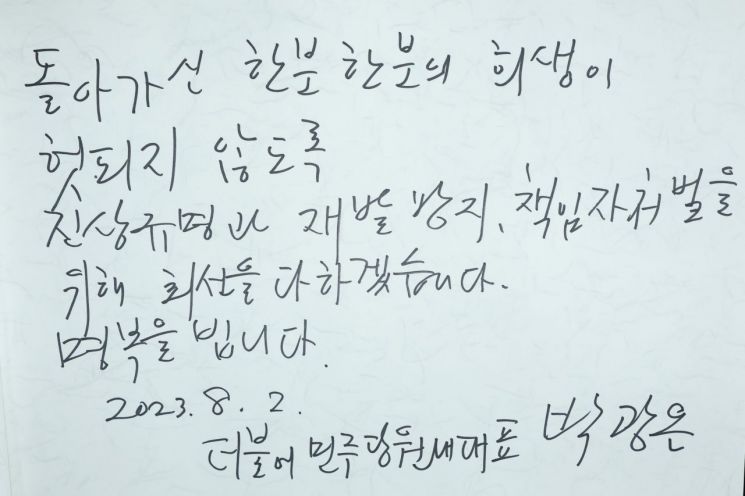 돌아가신 한분 한분의 희생이
헛되지 않도록
진상규명과 재발 방지, 책임자처벌을
위해 최선을 다하겠습니다.
명복을 빕니다.
2023. 8. 2.
더불어민주당원내대표 박광온